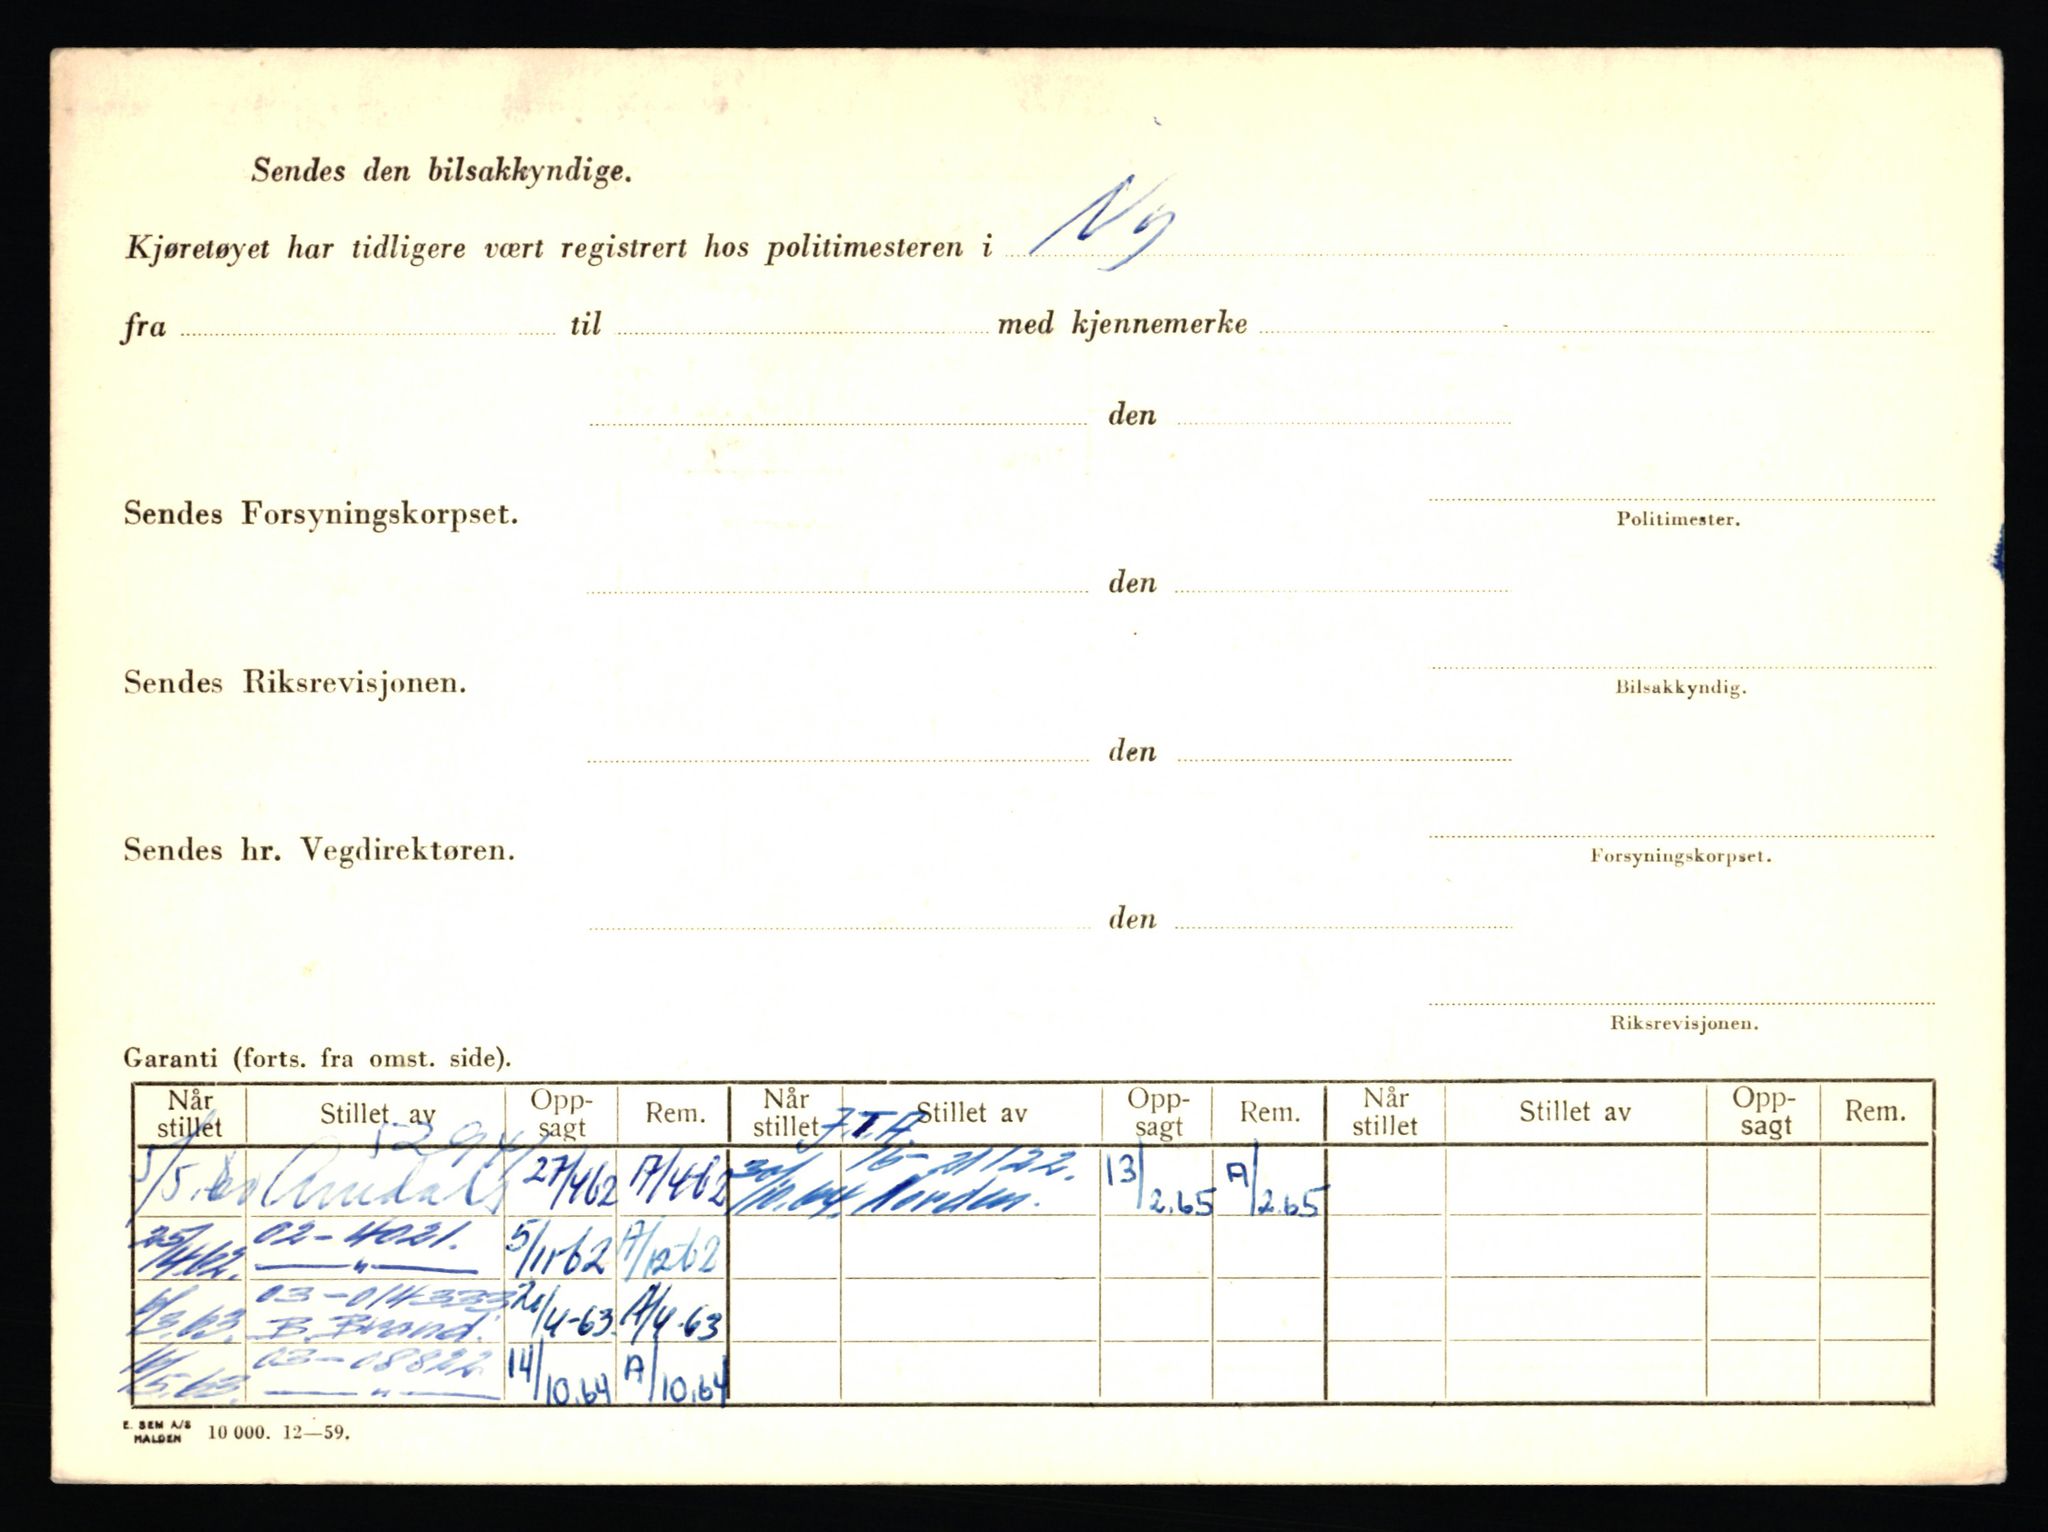 Sendes den bilsakkyndige.
Kjøretøyet har tidligere vært registrert hos politimesteren i Ny
fra til med kjennemerke
den
Sendes Forsyningskorpset.
Politimester.
den
Sendes Riksrevisjonen.
Bilsakkyndig.
den
Sendes hr. Vegdirektøren.
Forsyningskorpset.
den
Riksrevisjonen.
Garanti (forts. fra omst. side).
Når stillet Stillet av Opp-sagt Rem. Når stillet Stillet av Opp-sagt Rem. Når stillet Stillet av Opp-sagt Rem.
5/5.60 Arndals 27/4 62 A/4-62 30/10.64. Norden. 13/2.65 A/2.65
25/4.62. 02-4021. — " — 5/11-62 A/12-62
6/3.63. 03-014333 B. Brand. 4-63. A/4-63
03-08822 — " — 14/10.64 A/10.64
E. SEM A/S
HALDEN 10 000. 12—59.